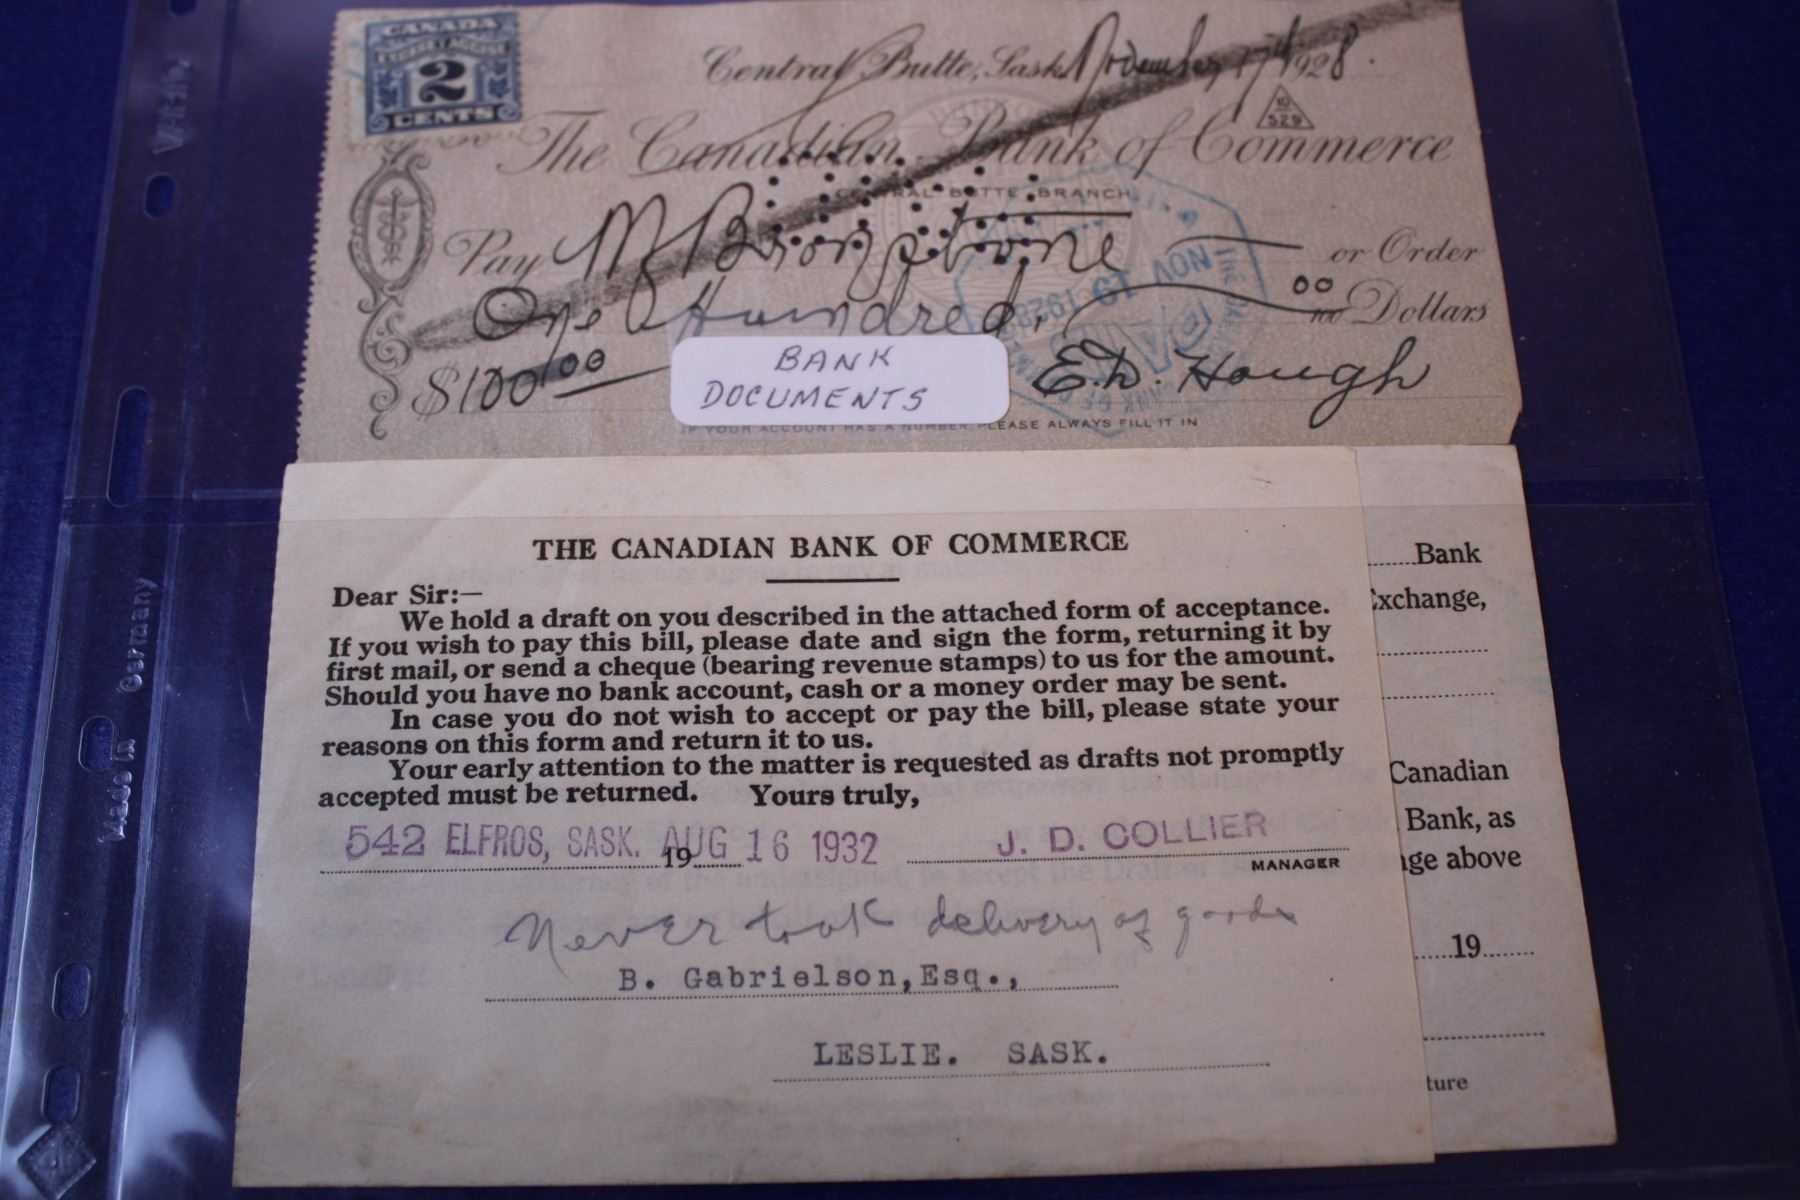 CANADA
EXCISE ACCISE
2
CENTS
Central Butte, Sask. November 17th 1928.
10
529
The Canadian Bank of Commerce
CENTRAL BUTTE BRANCH
Pay M or Order
One Hundred. 00
100 Dollars
NOV 19 1928
PAID
$100.00
BANK
DOCUMENTS
E.D. Hough
IF YOUR ACCOUNT HAS A NUMBER, PLEASE ALWAYS FILL IT IN
THE CANADIAN BANK OF COMMERCE
Dear Sir:—
We hold a draft on you described in the attached form of acceptance.
If you wish to pay this bill, please date and sign the form, returning it by
first mail, or send a cheque (bearing revenue stamps) to us for the amount.
Should you have no bank account, cash or a money order may be sent.
In case you do not wish to accept or pay the bill, please state your
reasons on this form and return it to us.
Your early attention to the matter is requested as drafts not promptly
accepted must be returned. Yours truly,
542 ELFROS, SASK. AUG 16 1932 J. D. COLLIER
19
MANAGER
Never took delivery of goods
B. Gabrielson, Esq.,
LESLIE. SASK.
Bank
Exchange,
Canadian
Bank, as
ge above
19
ture
Made in Germany